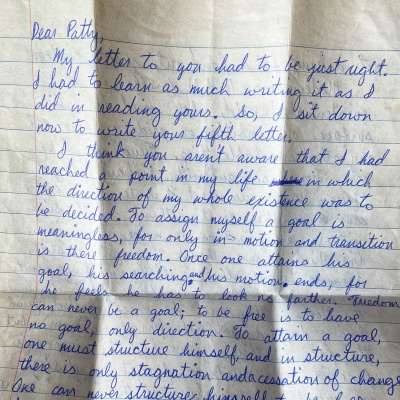 Dear Patty,
My letter to you had to be just right.
I had to learn as much writing it as I
did in reading yours. So, I sit down
now to write your fifth letter.
I think you aren't aware that I had
reached a point in my life in which
the direction of my whole existence was to
be decided. To assign myself a goal is
meaningless, for only in motion and transition
is there freedom. Once one attains his
goal, his searching and his motion ends, for
he feels he has to look no farther. Freedom
can never be a goal; to be free is to have
no goal, only direction. To attain a goal,
one must structure himself, and in structure,
there is only stagnation and a cessation of change.
One can never structure himself to